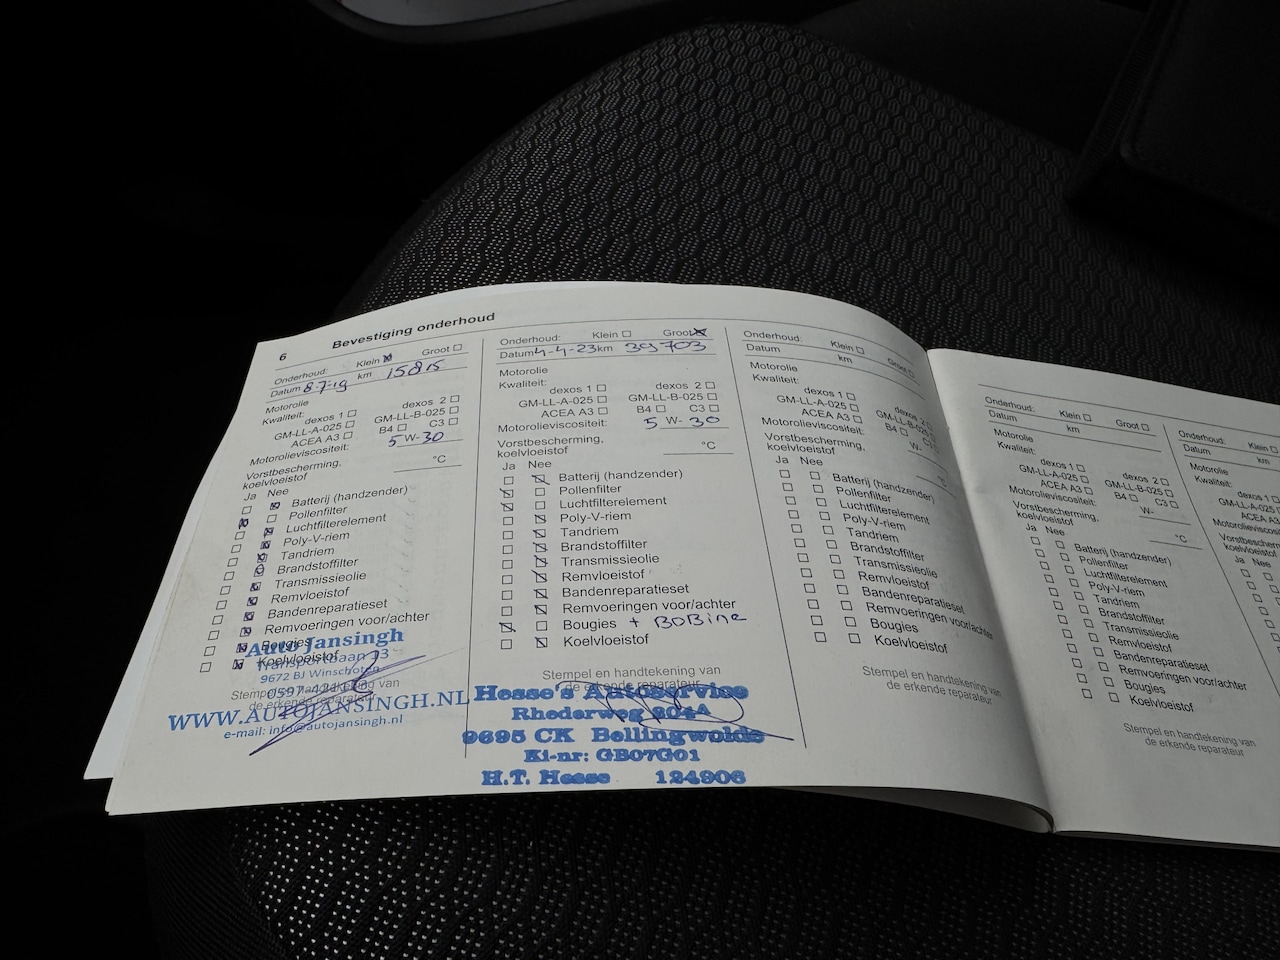 6 Bevestiging onderhoud
Onderhoud: Klein Groot
Datum 8-7-19 km 15815
Motorolie
Kwaliteit:
dexos 1 dexos 2
GM-LL-A-025 GM-LL-B-025
ACEA A3 B4 C3
Motorolieviscositeit: 5 W- 30
Vorstbescherming,
koelvloeistof °C
Ja Nee
Batterij (handzender)
Pollenfilter
Luchtfilterelement
Poly-V-riem
Tandriem
Brandstoffilter
Transmissieolie
Remvloeistof
Bandenreparatieset
Remvoeringen voor/achter
Bougies
Koelvloeistof
Stempel en handtekening van
de erkende reparateur
Auto Jansingh
Transportbaan 13
9672 BJ Winschoten
WWW.AUTOJANSINGH.NL
e-mail: info@autojansingh.nl
Onderhoud: Klein Groot
Datum 4-4-23 km 39703
Motorolie
Kwaliteit:
dexos 1 dexos 2
GM-LL-A-025 GM-LL-B-025
ACEA A3 B4 C3
Motorolieviscositeit: 5 W- 30
Vorstbescherming,
koelvloeistof °C
Ja Nee
Batterij (handzender)
Pollenfilter
Luchtfilterelement
Poly-V-riem
Tandriem
Brandstoffilter
Transmissieolie
Remvloeistof
Bandenreparatieset
Remvoeringen voor/achter
Bougies + BOBine
Koelvloeistof
Stempel en handtekening van
de erkende reparateur
Hesse's Autoservice
Rhederweg 204A
9695 CK Bellingwolde
Ki-nr: GB07G01
H.T. Hesse 124906
Onderhoud: Klein Groot
Datum km
Motorolie
Kwaliteit:
dexos 1 dexos 2
GM-LL-A-025 GM-LL-B-025
ACEA A3 B4 C3
Motorolieviscositeit: W-
Vorstbescherming,
koelvloeistof °C
Ja Nee
Batterij (handzender)
Pollenfilter
Luchtfilterelement
Poly-V-riem
Tandriem
Brandstoffilter
Transmissieolie
Remvloeistof
Bandenreparatieset
Remvoeringen voor/achter
Bougies
Koelvloeistof
Stempel en handtekening van
de erkende reparateur
Onderhoud: Klein Groot
Datum km
Motorolie
Kwaliteit:
dexos 1 dexos 2
GM-LL-A-025 GM-LL-B-025
ACEA A3 B4 C3
Motorolieviscositeit: W-
Vorstbescherming,
koelvloeistof °C
Ja Nee
Batterij (handzender)
Pollenfilter
Luchtfilterelement
Poly-V-riem
Tandriem
Brandstoffilter
Transmissieolie
Remvloeistof
Bandenreparatieset
Remvoeringen voor/achter
Bougies
Koelvloeistof
Stempel en handtekening van
de erkende reparateur
Onderhoud: Klein
Datum
Motorolie
Kwaliteit:
dexos 1
GM-LL-A-025
ACEA
Motorolieviscositeit
koelvloeistof
Ja Nee